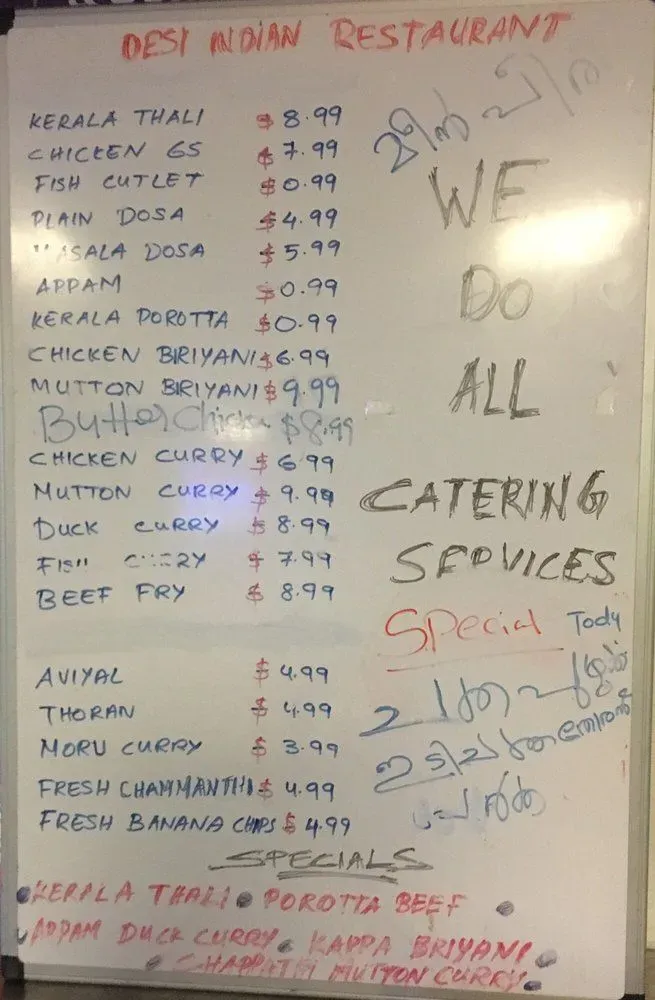 DESI INDIAN RESTAURANT
KERALA THALI $ 8.99
CHICKEN 65 $ 7.99
FISH CUTLET $ 0.99
PLAIN DOSA $ 4.99
MASALA DOSA $ 5.99
APPAM $ 0.99
KERALA POROTTA $ 0.99
CHICKEN BIRIYANI $ 6.99
MUTTON BIRIYANI $ 9.99
Butter Chicken $8.99
CHICKEN CURRY $ 6.99
MUTTON CURRY $ 9.99
DUCK CURRY $ 8.99
FISH CURRY $ 7.99
BEEF FRY $ 8.99
AVIYAL $ 4.99
THORAN $ 4.99
MORU CURRY $ 3.99
FRESH CHAMMANTHI $ 4.99
FRESH BANANA CHIPS $ 4.99
മീൻ പീര
WE
DO
ALL
CATERING
SERVICES
Special Tody
SPECIALS
KERALA THALI POROTTA BEEF
APPAM DUCK CURRY KAPPA BRIYANI
CHAPPATHI MUTTON CURRY